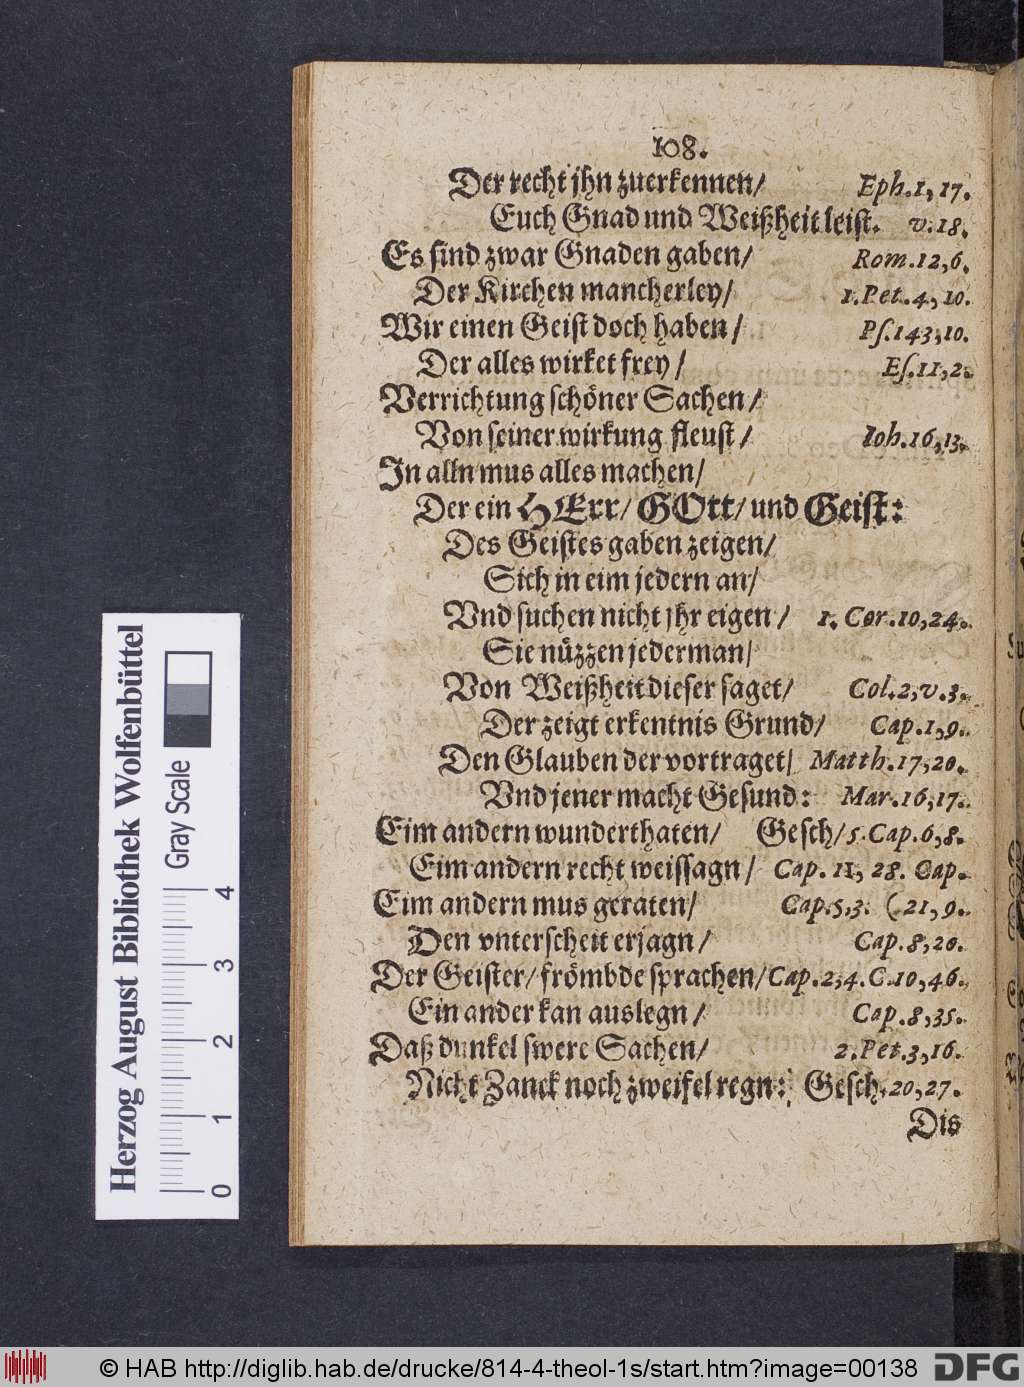 108.
Der recht jhn zuerkennen/ Eph.1, 17.
Euch Gnad und Weißheit leist. v.18.
Es sind zwar Gnaden gaben/ Rom.12,6.
Der Kirchen mancherley/ 1.Pet.4, 10.
Wir einen Geist doch haben/ Ps.143,10.
Der alles wirket frey/ Es.11,2.
Verrichtung schöner Sachen/
Von seiner wirkung fleust/ Joh.16,13.
In alln mus alles machen/
Der ein HErr/ GOtt/ und Geist:
Des Geistes gaben zeigen/
Sich in eim jedern an/
Vnd suchen nicht jhr eigen/ 1. Cor.10,24.
Sie nüzzen jederman/
Von Weißheit dieser saget/ Col.2,v.3.
Der zeigt erkentnis Grund/ Cap.1,9.
Den Glauben der vortraget/ Matth.17,20.
Vnd jener macht Gesund: Mar.16,17.
Eim andern wunderthaten/ Gesch/5.Cap.6,8.
Eim andern recht weissagn/ Cap. 11, 28. Cap.
Eim andern mus geraten/ Cap.5,3. (21,9.
Den vnterscheit erjagn/ Cap.8,20.
Der Geister/ frömbde sprachen/ Cap.2,4.C.10,46.
Ein ander kan auslegn/ Cap.8,35.
Daß dunkel swere Sachen/ 2.Pet.3,16.
Nicht Zanck noch zweifel regn: Gesch.20,27.
Dis
Herzog August Bibliothek Wolfenbüttel
Gray Scale
0 1 2 3 4
© HAB http://diglib.hab.de/drucke/814-4-theol-1s/start.htm?image=00138
DFG